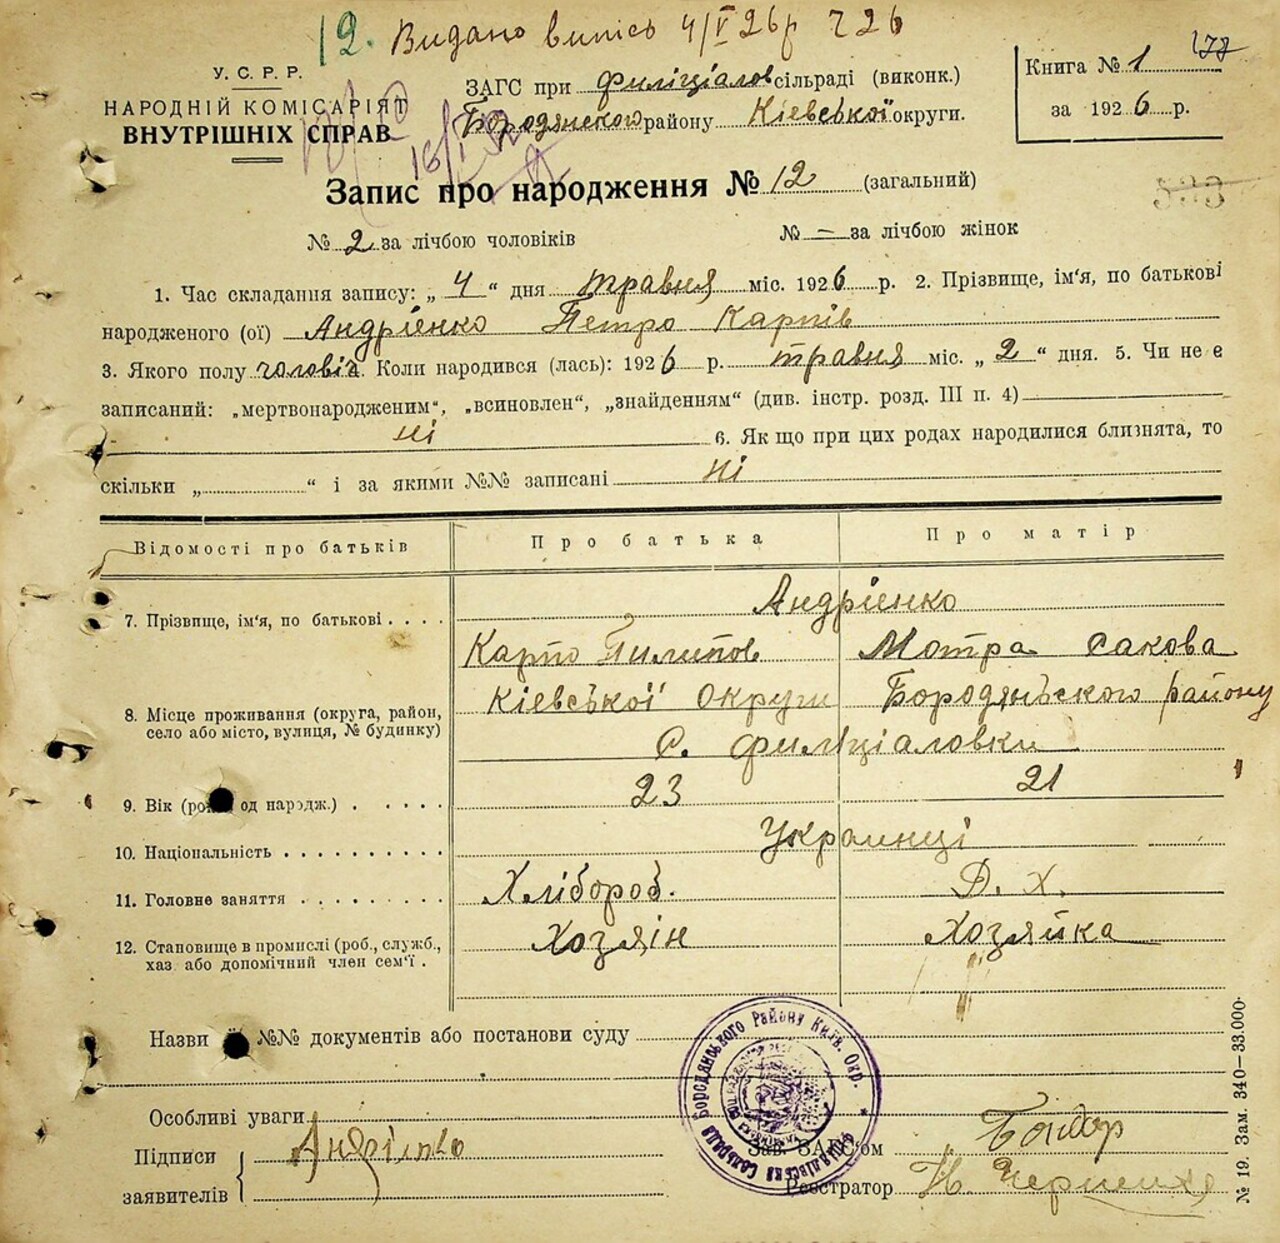 12. Видано випісь 4/V 26р 226
177
У. С. Р. Р.
НАРОДНІЙ КОМІСАРІЯТ
ВНУТРІШНІХ СПРАВ
ЗАГС при Филіціалов сільраді (виконк.)
Бородянского району Кіевської округи.
Книга № 1
за 1926 р.
Запис про народження № 12 (загальний)
533
№ 2 за лічбою чоловіків № — за лічбою жінок
1. Час складання запису: „ 4 “ дня травня міс. 1926 р. 2. Прізвище, ім‘я, по батькові
народженого (ої) Андріенко Петро Карпів
3. Якого полу чоловіч. Коли народився (лась): 1926 р. травня міс. „ 2 “ дня. 5. Чи не є
записаний: „мертвонародженим“, „всиновлен“, „знайденням“ (див. інстр. розд. III п. 4)
ні 6. Як що при цих родах народилися близнята, то
скільки „ “ і за якими №№ записані ні
Відомості про батьків Про батька Про матір
Андріенко
7. Прізвище, ім‘я, по батькові . . . .
Карпо Пилипов Мотра Сакова
Кіевської Округи Бородянського району
8. Місце проживання (округа, район,
село або місто, вулиця, № будинку)
С. Филіціаловки
9. Вік (ро од народж.) . . . . . 23 21
Украинці
10. Національність . . . . . . . . . .
11. Головне заняття . . . . . . . . . Хлібороб. Д. Х.
12. Становище в промислі (роб., служб.,
хаз. або допомічний член сем‘ї . Хозяін Хозяйка
Назви й №№ документів або постанови суду
Бородянського Району Київ. Окр.
Особливі уваги
Підписи
заявителів
Андрієнко
Зав. ЗАГС‘ом Бондар
Реєстратор Н. Черненко
№ 19. Зам. 340—33.000.